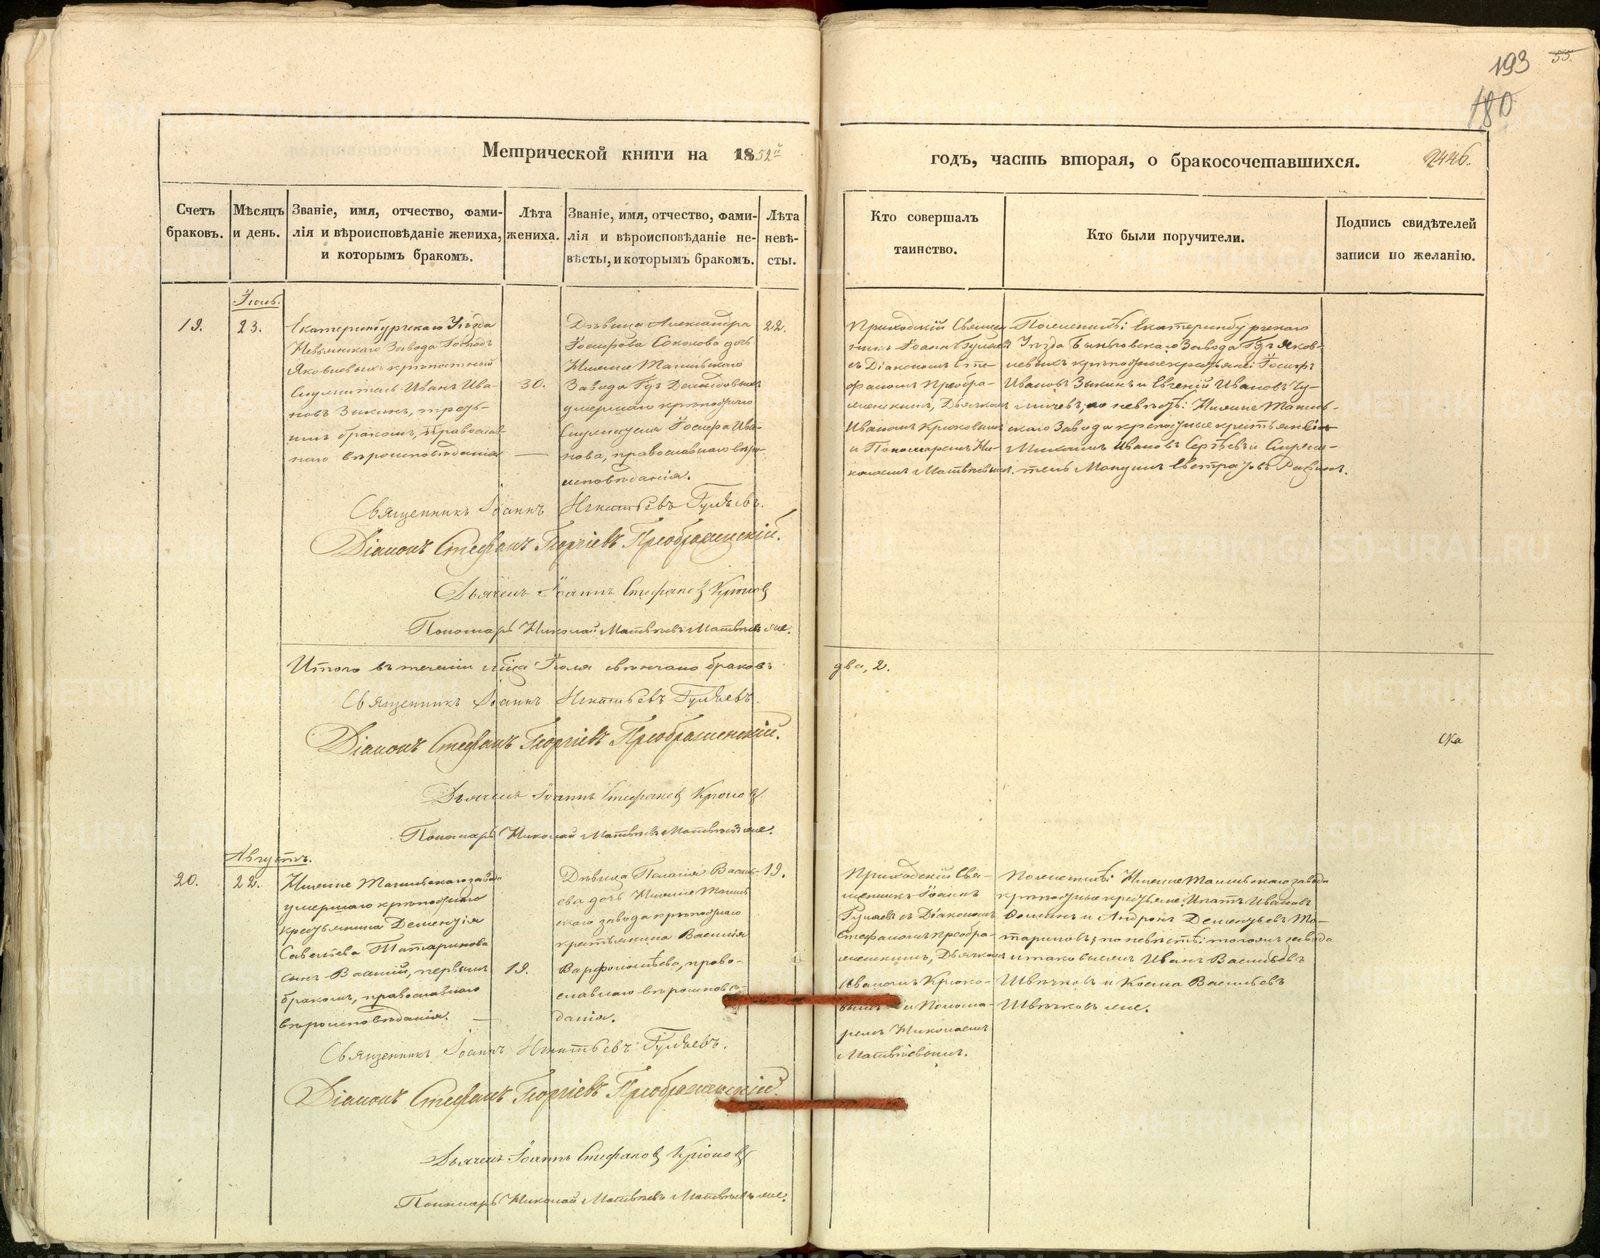 193 55.
180
Метрической книги на 1852й
годъ, часть вторая, о бракосочетавшихся.
2446.
Счетъ браковъ.
Мѣсяцъ и день.
Званіе, имя, отчество, фами-
лія и вѣроисповѣданіе жениха,
и которымъ бракомъ.
Лѣта жениха.
Званіе, имя, отчество, фами-
лія и вѣроисповѣданіе не-
вѣсты, и которымъ бракомъ.
Лѣта невѣ-
сты.
Кто совершалъ
таинство.
Кто были поручители.
Подпись свидѣтелей
записи по желанію.
19.
23.
Екатеринбургскаго Уѣзда
Невьянскаго Завода Господъ
Яковлевыхъ крѣпостный
Служитель Иванъ Ива-
новъ Зыкинъ, треть-
имъ бракомъ, православ
наго вѣроисповѣданія
30.
Дѣвица Александра
Іосифова Соколова дочь
Нижне Тагильскаго
Завода Гдъ Демидовыхъ
умершаго крѣпостнаго
Служителя Іосифа Ива-
нова, православнаго вѣро-
исповѣданія.
22.
Приходскій Священ
никъ Іоаннъ Гуляевъ
съ Діакономъ Сте
фаномъ Преобра-
женскимъ, Дьячкомъ
Иваномъ Крюковымъ
и Пономаремъ Ни-
колаемъ Матвѣевымъ.
По женихѣ: Екатеринбургскаго
Уѣзда Быньговскаго Завода Гдъ Яков-
левыхъ крѣпостные крестьяне: Іосифъ
Ивановъ Зыкинъ и Евгеній Ивановъ
по невѣстѣ: Нижне Тагиль-
скаго Завода крѣпостные крестьянинъ
Михаилъ Ивановъ Сергѣевъ и Служи-
тель
Священникъ Іоаннъ Игнатьевъ Гуляевъ.
Діаконъ Стефанъ Георгіевъ Преображенскій.
Дьячекъ Іоаннъ Стефановъ Крюковъ
Пономарь Николай Матвѣевъ Матвѣевъ же.
Итого въ теченіи мѣсяца Іюля свѣнчано браковъ
два, 2.
Священникъ Іоаннъ Игнатьевъ Гуляевъ.
Діаконъ Стефанъ Георгіевъ Преображенскій.
Дьячекъ Іоаннъ Стефановъ Крюковъ.
Пономарь Николай Матвѣевъ Матвѣевъ же.
Августъ.
20.
22.
Нижне Тагильскаго завода
умершаго крѣпостнаго
крестьянина Дементія
Савельева Татаринова
сынъ Василій, первымъ
бракомъ, православнаго
вѣроисповѣданія.
19.
Дѣвица Пелагія Василь-
ева дочь Нижне Тагиль
скаго завода крѣпостнаго
крестьянина Василія
Варфоломѣева, право-
славнаго вѣроисповѣ-
данія.
19.
Приходскій Свя-
щенникъ Іоаннъ
Гуляевъ съ Діакономъ
Стефаномъ Преобра-
женскимъ, Дьячкомъ
Иваномъ Крюко-
вымъ и Понома-
ремъ Николаемъ
Матвѣевымъ.
По женихѣ: Нижне Тагильскаго завода
крѣпостные крестьяне: Игнатъ Ивановъ
Ѳоминъ и Андрей Дементьевъ Та-
тариновъ; по невѣстѣ: тогожъ завода
и таковыежъ Иванъ Васильевъ
Швѣцовъ и Косма Васильевъ
Швѣцовъ же.
Священникъ Іоаннъ Игнатьевъ Гуляевъ.
Діаконъ Стефанъ Георгіевъ Преображенскій.
Дьячекъ Іоаннъ Стефановъ Крюковъ
Пономарь Николай Матвѣевъ Матвѣевъ же.